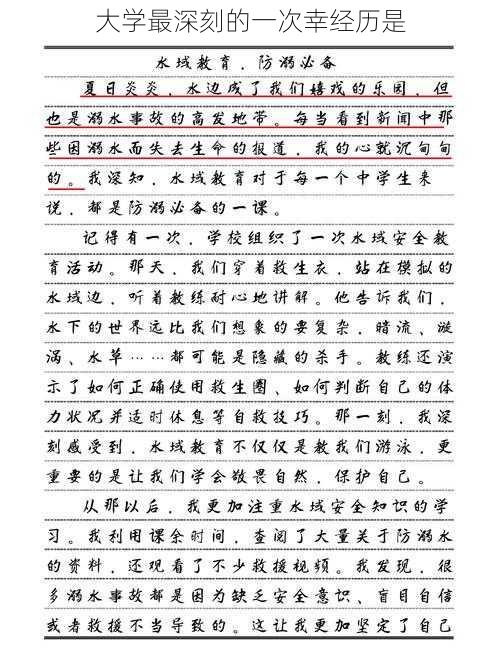 大学最深刻的一次幸经历是
水域教育，防溺必备
夏日炎炎，水边成了我们嬉戏的乐园，但
也是溺水事故的高发地带。每当看到新闻中那
些因溺水而失去生命的报道，我的心就沉甸甸
的。我深知，水域教育对于每一个中学生来
说，都是防溺必备的一课。
记得有一次，学校组织了一次水域安全教
育活动。那天，我们穿着救生衣，站在模拟的
水域边，听着教练耐心地讲解。他告诉我们，
水下的世界远比我们想象的要复杂，暗流、漩
涡、水草……都可能是隐藏的杀手。教练还演
示了如何正确使用救生圈、如何判断自己的体
力状况并适时休息等自救技巧。那一刻，我深
刻感受到，水域教育不仅仅是教我们游泳，更
重要的是让我们学会敬畏自然，保护自己。
从那以后，我更加注重水域安全知识的学
习。我利用课余时间，查阅了大量关于防溺水
的资料，还观看了不少救援视频。我发现，很
多溺水事故都是因为缺乏安全意识、盲目自信
或者救援不当导致的。这让我更加坚定了自己